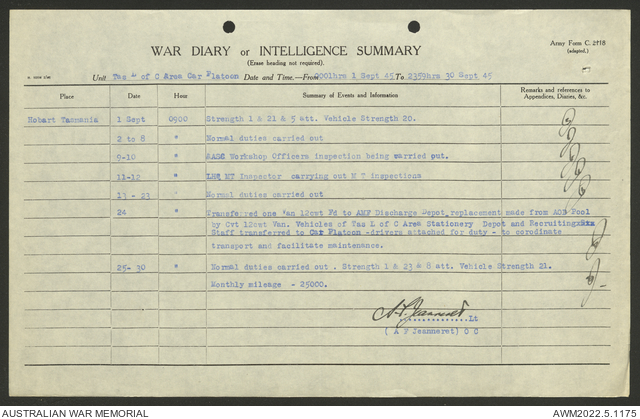 Army Form C. 2118
(adapted.)
WAR DIARY or INTELLIGENCE SUMMARY
(Erase heading not required).
Unit Tas L of C Area Car Platoon Date and Time.—From 0001hrs 1 Sept 45 To 2359hrs 30 Sept 45
Place Date Hour Summary of Events and Information Remarks and references to
Appendices, Diaries, &c.
Hobart Tasmania 1 Sept 0900 Strength 1 & 21 & 5 att. Vehicle Strength 20.
2 to 8 " Normal duties carried out
9-10 " AASC Workshop Officers inspection being warried put.
11-12 " LHQ MT Inspector carrying out M T inspections
13 - 23 Normal duties carried out
24 " Transferred one Van 12cwt Fd to AMF Discharge Depot replacement made from AOD Pool
by Cvt 12cwt Van. Vehicles of Tas L of C Area Stationery Depot and Recruiting
Staff transferred to Car Platoon -drivers attached for duty - to corodinate
transport and facilitate maintenance.
25- 30 " Normal duties carried out . Strength 1 & 23 & 8 att. Vehicle Strength 21.
Monthly mileage - 25000.
A F Jeanneret
Lt
( A F Jeanneret) O C
AUSTRALIAN WAR MEMORIAL AWM2022.5.1175